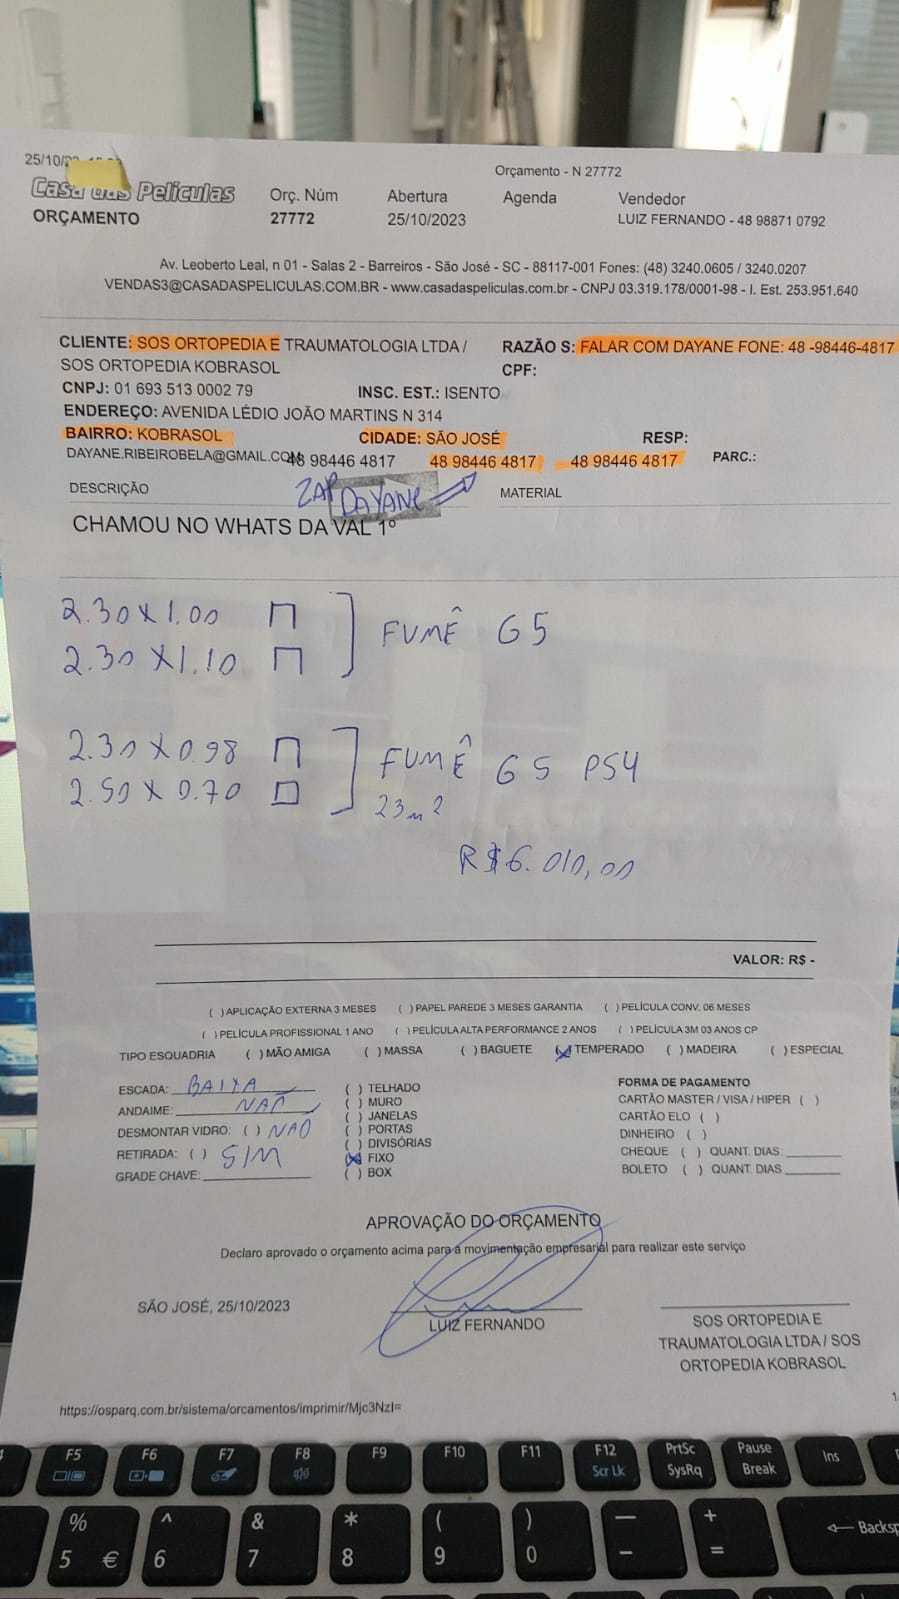 25/10/
Orçamento - N 27772
Casa das Películas
Orç. Núm Abertura Agenda Vendedor
ORÇAMENTO 27772 25/10/2023 LUIZ FERNANDO - 48 98871 0792
Av. Leoberto Leal, n 01 - Salas 2 - Barreiros - São José - SC - 88117-001 Fones: (48) 3240.0605 / 3240.0207
VENDAS3@CASADASPELICULAS.COM.BR - www.casadaspeliculas.com.br - CNPJ 03.319.178/0001-98 - I. Est. 253.951.640
CLIENTE: SOS ORTOPEDIA E TRAUMATOLOGIA LTDA / RAZÃO S: FALAR COM DAYANE FONE: 48 -98446-4817
SOS ORTOPEDIA KOBRASOL CPF:
CNPJ: 01 693 513 0002 79 INSC. EST.: ISENTO
ENDEREÇO: AVENIDA LÉDIO JOÃO MARTINS N 314
BAIRRO: KOBRASOL CIDADE: SÃO JOSÉ RESP:
DAYANE.RIBEIROBELA@GMAIL.COM 48 98446 4817 48 98446 4817 48 98446 4817 PARC.:
DESCRIÇÃO ZAP DAYANE MATERIAL
CHAMOU NO WHATS DA VAL 1º
2.30 X 1.00
FUMÊ G5
2.30 X 1.10
2.30 X 0.98
FUMÊ G5 PS4
2.50 X 0.70
23m2
R$6.010,00
VALOR: R$ -
( )APLICAÇÃO EXTERNA 3 MESES ( ) PAPEL PAREDE 3 MESES GARANTIA ( ) PELÍCULA CONV. 06 MESES
( ) PELÍCULA PROFISSIONAL 1 ANO ( ) PELÍCULA ALTA PERFORMANCE 2 ANOS ( ) PELÍCULA 3M 03 ANOS CP
TIPO ESQUADRIA ( ) MÃO AMIGA ( ) MASSA ( ) BAGUETE (X) TEMPERADO ( ) MADEIRA ( ) ESPECIAL
ESCADA: BAIXA ( ) TELHADO FORMA DE PAGAMENTO
ANDAIME: NAO ( ) MURO CARTÃO MASTER / VISA / HIPER ( )
( ) JANELAS CARTÃO ELO ( )
DESMONTAR VIDRO: ( ) NÃO ( ) PORTAS DINHEIRO ( )
RETIRADA: ( ) SIM ( ) DIVISÓRIAS CHEQUE ( ) QUANT. DIAS:
(X) FIXO BOLETO ( ) QUANT. DIAS
GRADE CHAVE: ( ) BOX
APROVAÇÃO DO ORÇAMENTO
Declaro aprovado o orçamento acima para a movimentação empresarial para realizar este serviço
SÃO JOSÉ, 25/10/2023
LUIZ FERNANDO
SOS ORTOPEDIA E
TRAUMATOLOGIA LTDA / SOS
ORTOPEDIA KOBRASOL
https://osparq.com.br/sistema/orcamentos/imprimir/Mjc3NzI=
F5 F6 F7 F8 F9 F10 F11 F12 Scr Lk PrtSc SysRq Pause Break Ins
% 5 € ^ 6 & 7 * 8 ( 9 ) 0 — - + = Backsp